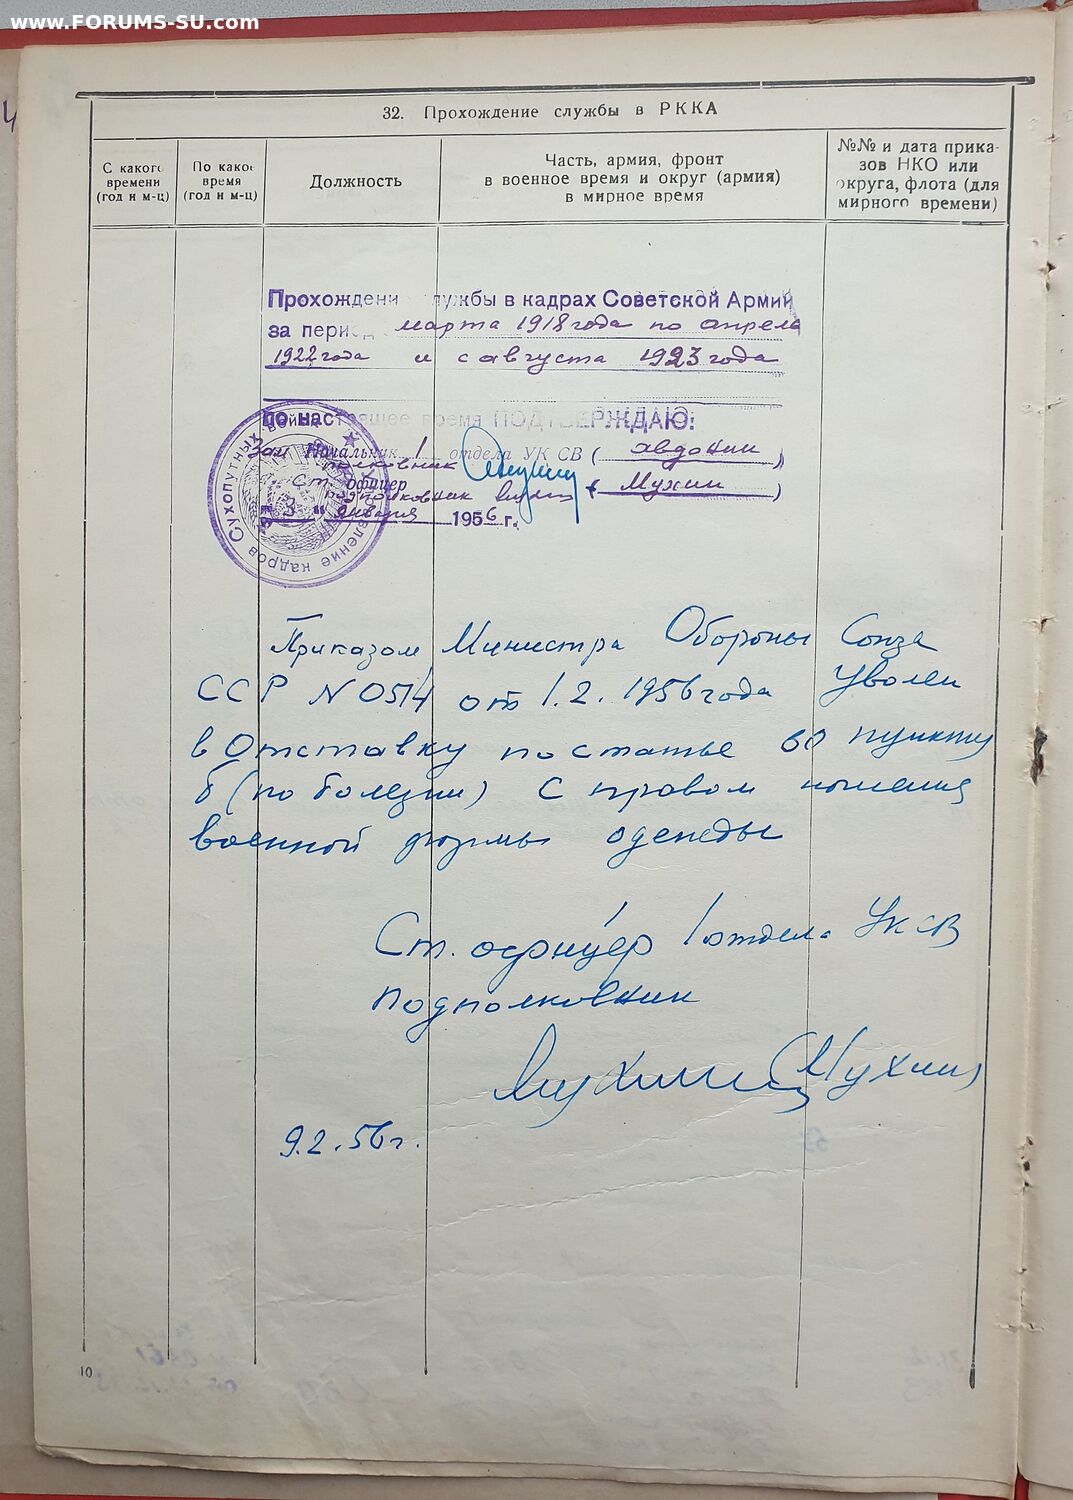 www.FORUMS-SU.com
32. Прохождение службы в РККА
С какого времени (год и м-ц)
По какое время (год и м-ц)
Должность
Часть, армия, фронт
в военное время и округ (армия)
в мирное время
№№ и дата прика-
зов НКО или
округа, флота (для
мирного времени)
Прохождени службы в кадрах Советской Армии
за период марта 1918 года по апрель
1922 года и с августа 1923 года
по настоящее время ПОДТВЕРЖДАЮ:
Зам Начальник 1 отдела УК СВ (Авдонин)
полковник
Ст. офицер
подполковник (Мухин)
"3" января 1956 г.
Сухопутных Войск Управление кадров
Приказом Министра Обороны Союза
ССР N 0514 от 1.2.1956 года Уволен
в Отставку по статье 60 пункту
б (по болезни) с правом ношения
военной формы одежды
Ст. офицер 1 отдела УК СВ
подполковник
Мухин
9.2.56 г.
10